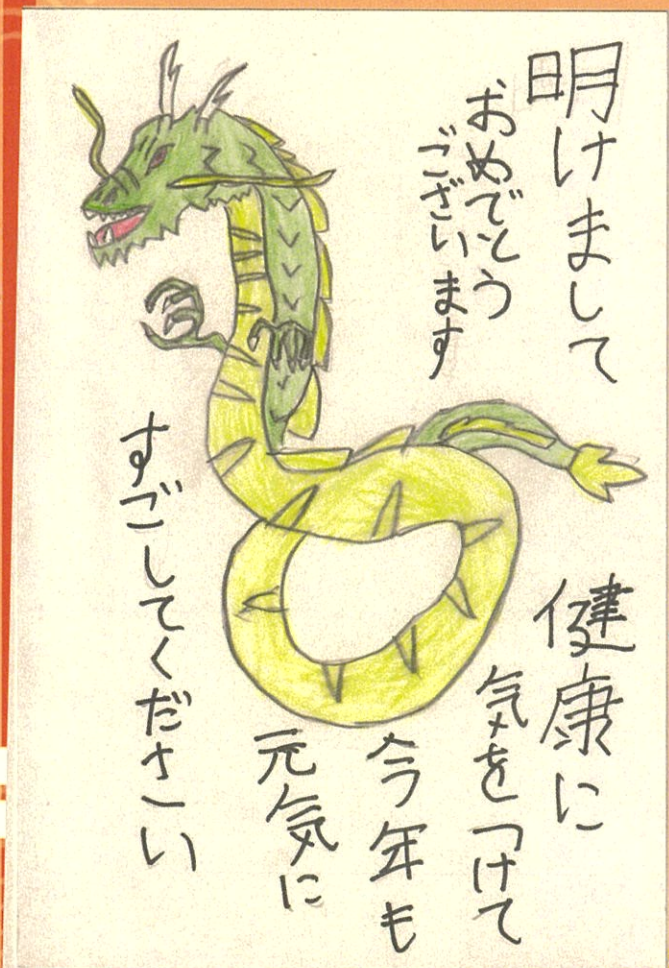 明けまして
おめでとう
ございます
健康に
気をつけて
今年も
元気に
すごしてください